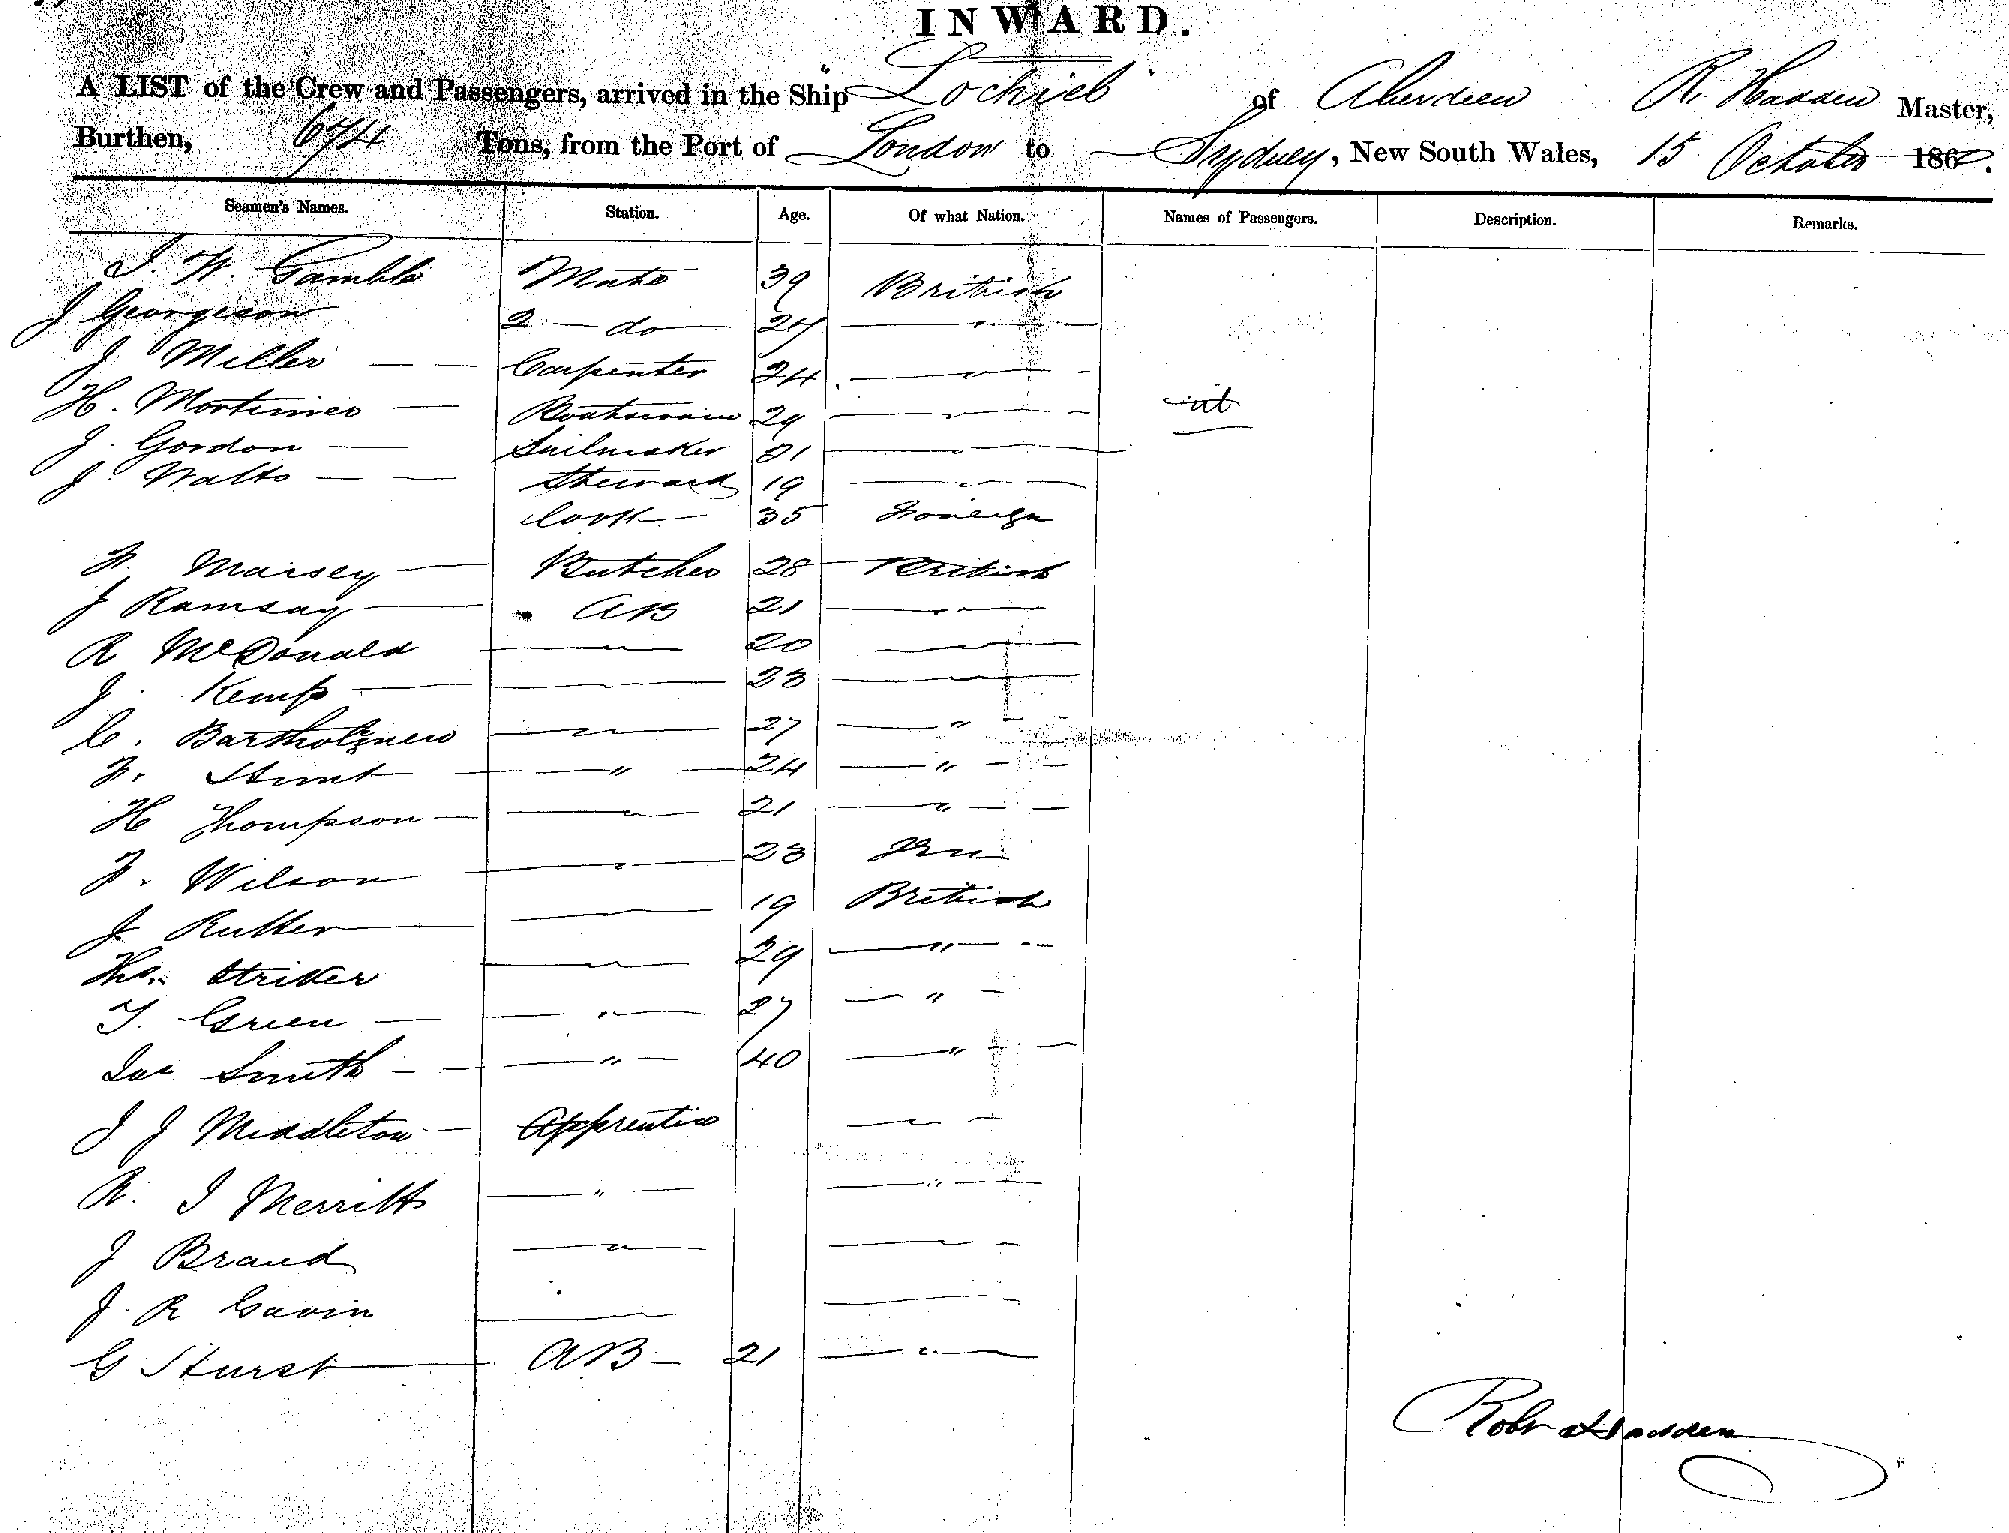 INWARD.
A LIST of the Crew and Passengers, arrived in the Ship "Lochiel" of Aberdeen R. Hadden Master,
Burthen, 674 Tons, from the Port of London to Sydney, New South Wales, 15 October 186
Seamen's Names. Station. Age. Of what Nation. Names of Passengers. Description. Remarks.
W. Gamble Mate 39 British
J Georgeson 2 do 24 "
J. Miller Carpenter 24 "
H. Mortimer Boatswain 29 "
nil
J. Gordon Sailmaker "
J. Watts Steward 19 "
Cook 35 Foreign
Maisey Butcher 28 British
J Ramsay AB 21 "
R McDonald " 20 "
J. Kemp " 23 "
C. Bartholmew " 27 "
F. Hunt " 24 "
H Thompson " 21 "
F. Wilson " 23
J Rutter " 19 British
Striker " 29 "
T. Green " 27 "
Smith " 40 "
J J Middleton Apprentice "
R. Merritt " "
J Brand " "
J. R Gavin
G Hurst AB 21 "
Robt Hadden